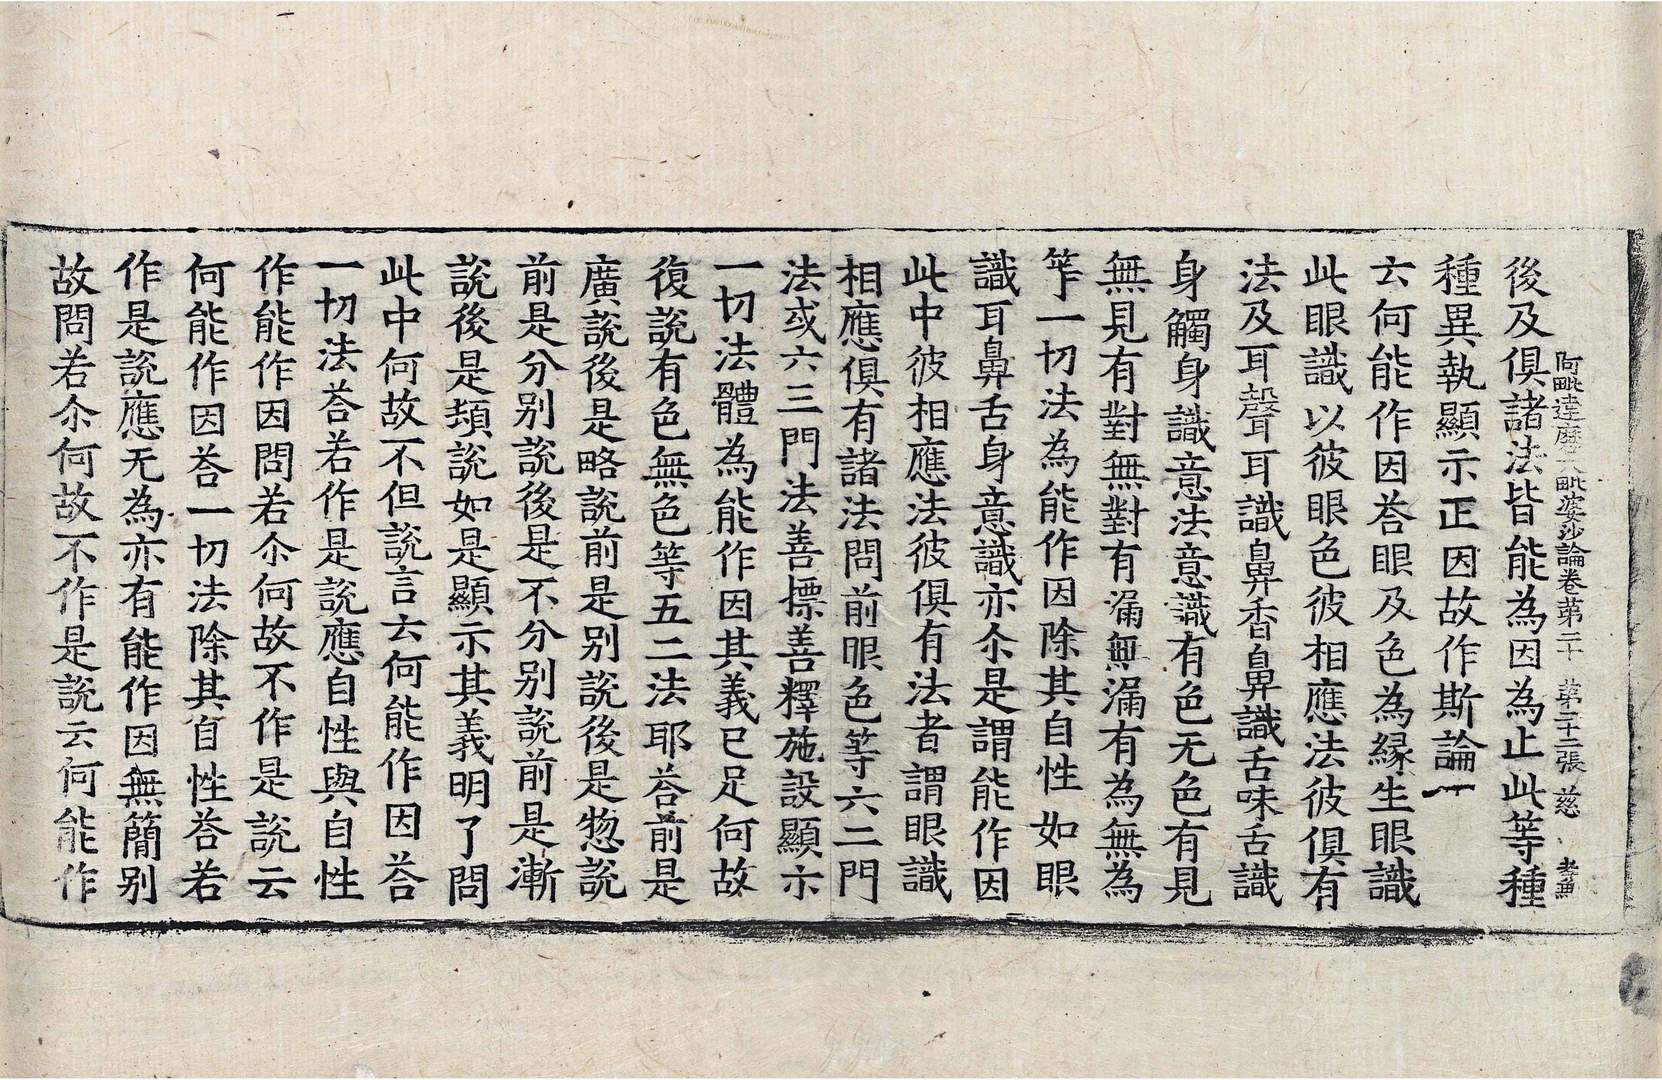 阿毗達磨大毗婆沙論卷苐二十　苐二十二張　慈　孝兼
後及俱諸法皆能為因為止此等種
種異執顯示正因故作斯論
云何能作因荅眼及色為緣生眼識
此眼識以彼眼色彼相應法彼俱有
法及耳聲耳識鼻香鼻識舌味舌識
身觸身識意法意識有色无色有見
無見有對無對有漏無漏有為無為
等一切法為能作因除其自性如眼
識耳鼻舌身意識亦尒是謂能作因
此中彼相應法彼俱有法者謂眼識
相應俱有諸法問前眼色等六二門
法或六三門法善摽善釋施設顯示
一切法體為能作因其義已足何故
復說有色無色等五二法耶荅前是
廣說後是略說前是別說後是惣說
前是分別說後是不分別說前是漸
說後是頓說如是顯示其義明了問
此中何故不但說言云何能作因荅
一切法荅若作是說應自性與自性
作能作因問若尒何故不作是說云
何能作因荅一切法除其自性荅若
作是說應无為亦有能作因無簡別
故問若尒何故不作是說云何能作